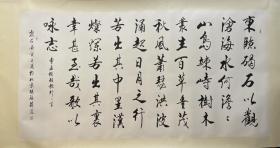 東臨碣石以觀
滄海水何澹々
山島竦峙樹木
叢生百草豐茂
秋風蕭瑟洪波
涌起日月之行
若出其中星漢
燦爛若出其裏
幸甚至哉歌以
咏志